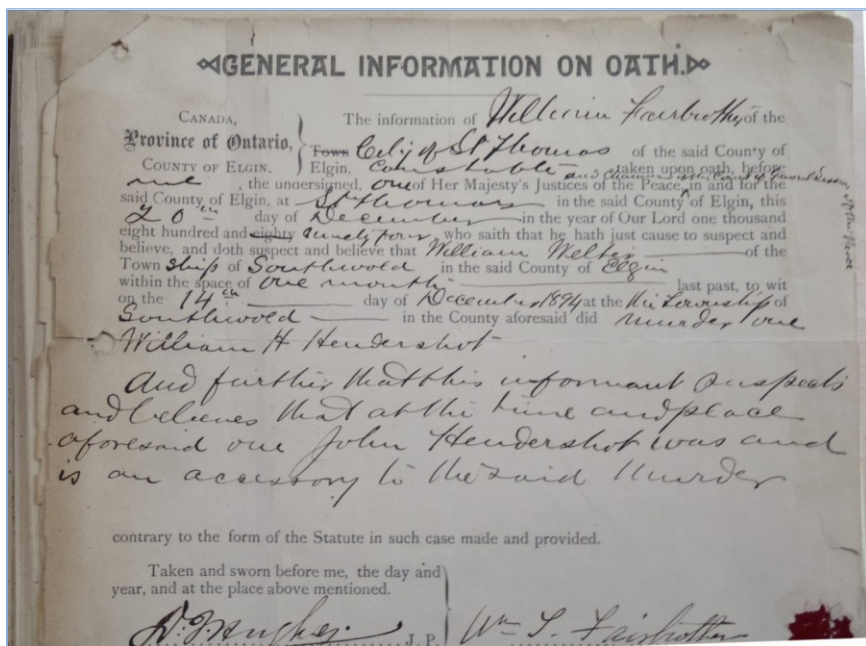 GENERAL INFORMATION ON OATH.
CANADA,
Province of Ontario,
COUNTY OF ELGIN.
The information of William Fairbrother of the
Town City of St Thomas of the said County of
Elgin, constable taken upon oath, before
me, the undersigned, one of Her Majesty's Justices of the Peace, in and for the
and chairman of the Court of General Sessions of the Peace
said County of Elgin, at St Thomas in the said County of Elgin, this
20th day of December in the year of Our Lord one thousand
eight hundred and eighty ninety four, who saith that he hath just cause to suspect and
believe, and doth suspect and believe that William Welter of the
Town ship of Southwold in the said County of Elgin
within the space of one month last past, to wit
on the 14th day of December 1894 at the the Township of
Southwold in the County aforesaid did murder one
William H Hendershot
And further that this informant suspects
and believes that at the time and place
aforesaid one John Hendershot was and
is an accessory to the said murder
contrary to the form of the Statute in such case made and provided.
Taken and sworn before me, the day and
year, and at the place above mentioned.
D. J. Hughes. J. P.
Wm L. Fairbrother